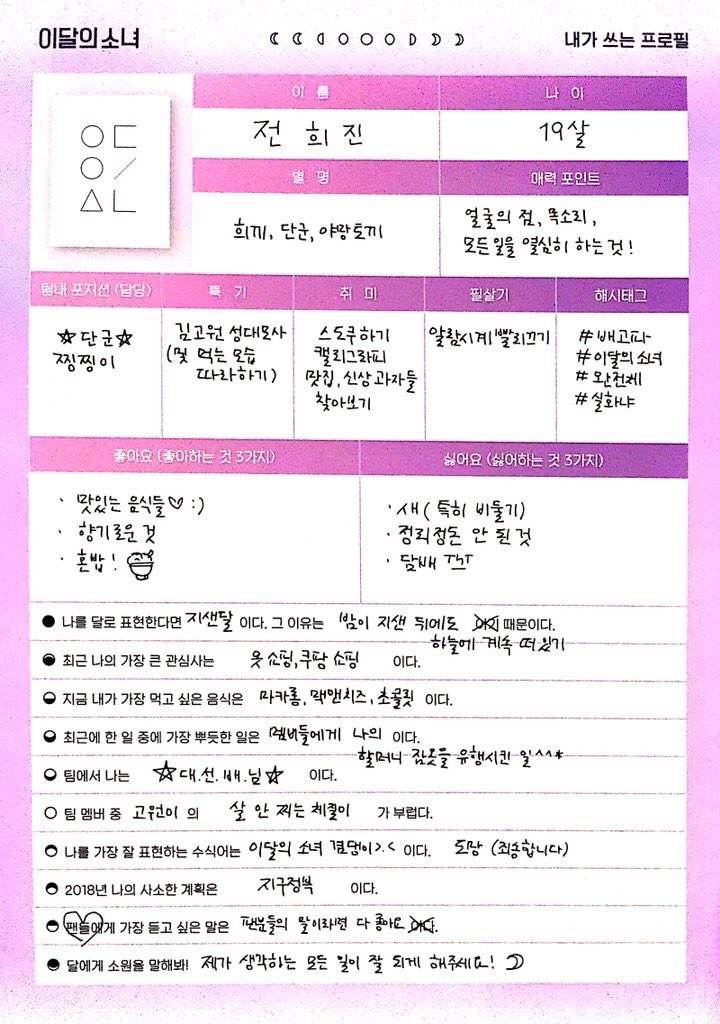 이달의 소녀
내가 쓰는 프로필
이름
나이
전 희 진
19살
별명
매력 포인트
희끼, 단군, 야망토끼
얼굴의 점, 목소리,
모든일을 열심히 하는 것!
팀내 포지션 (담당)
특기
취미
필살기
해시태그
☆단군☆
찡찡이
김고원 성대모사
(멋 먹는 모습
따라하기)
스도쿠하기
캘리그라피
맛집, 신상과자들
찾아보기
알람시계 빨리끄기
#배고파
#이달의소녀
#완전체
#실화냐
좋아요 (좋아하는 것 3가지)
싫어요 (싫어하는 것 3가지)
· 맛있는 음식들♡ :)
· 향기로운 것
· 혼밥!
· 새 (특히 비둘기)
· 정리정돈 안 된 것
· 담배 ㅜㅜ
나를 달로 표현한다면 지샌달 이다. 그 이유는 밤이 지샌 뒤에도 때문이다.
하늘에 계속 떠있기
최근 나의 가장 큰 관심사는 옷 쇼핑, 쿠팡 쇼핑 이다.
지금 내가 가장 먹고 싶은 음식은 마카롱, 맥앤치즈, 초콜릿 이다.
최근에 한 일 중에 가장 뿌듯한 일은 멤버들에게 나의 이다.
할머니 잠옷을 유행시킨 일^^*
팀에서 나는 ☆대.선.배.님☆ 이다.
팀 멤버 중 고원이 의 살 안 찌는 체질이 가 부럽다.
나를 가장 잘 표현하는 수식어는 이달의 소녀 겸댕이>.< 이다. 도망 (죄송합니다)
2018년 나의 사소한 계획은 지구정복 이다.
팬들에게 가장 듣고 싶은 말은 팬분들의 말이라면 다 좋아요.
달에게 소원을 말해봐! 제가 생각하는 모든 일이 잘 되게 해주세요!